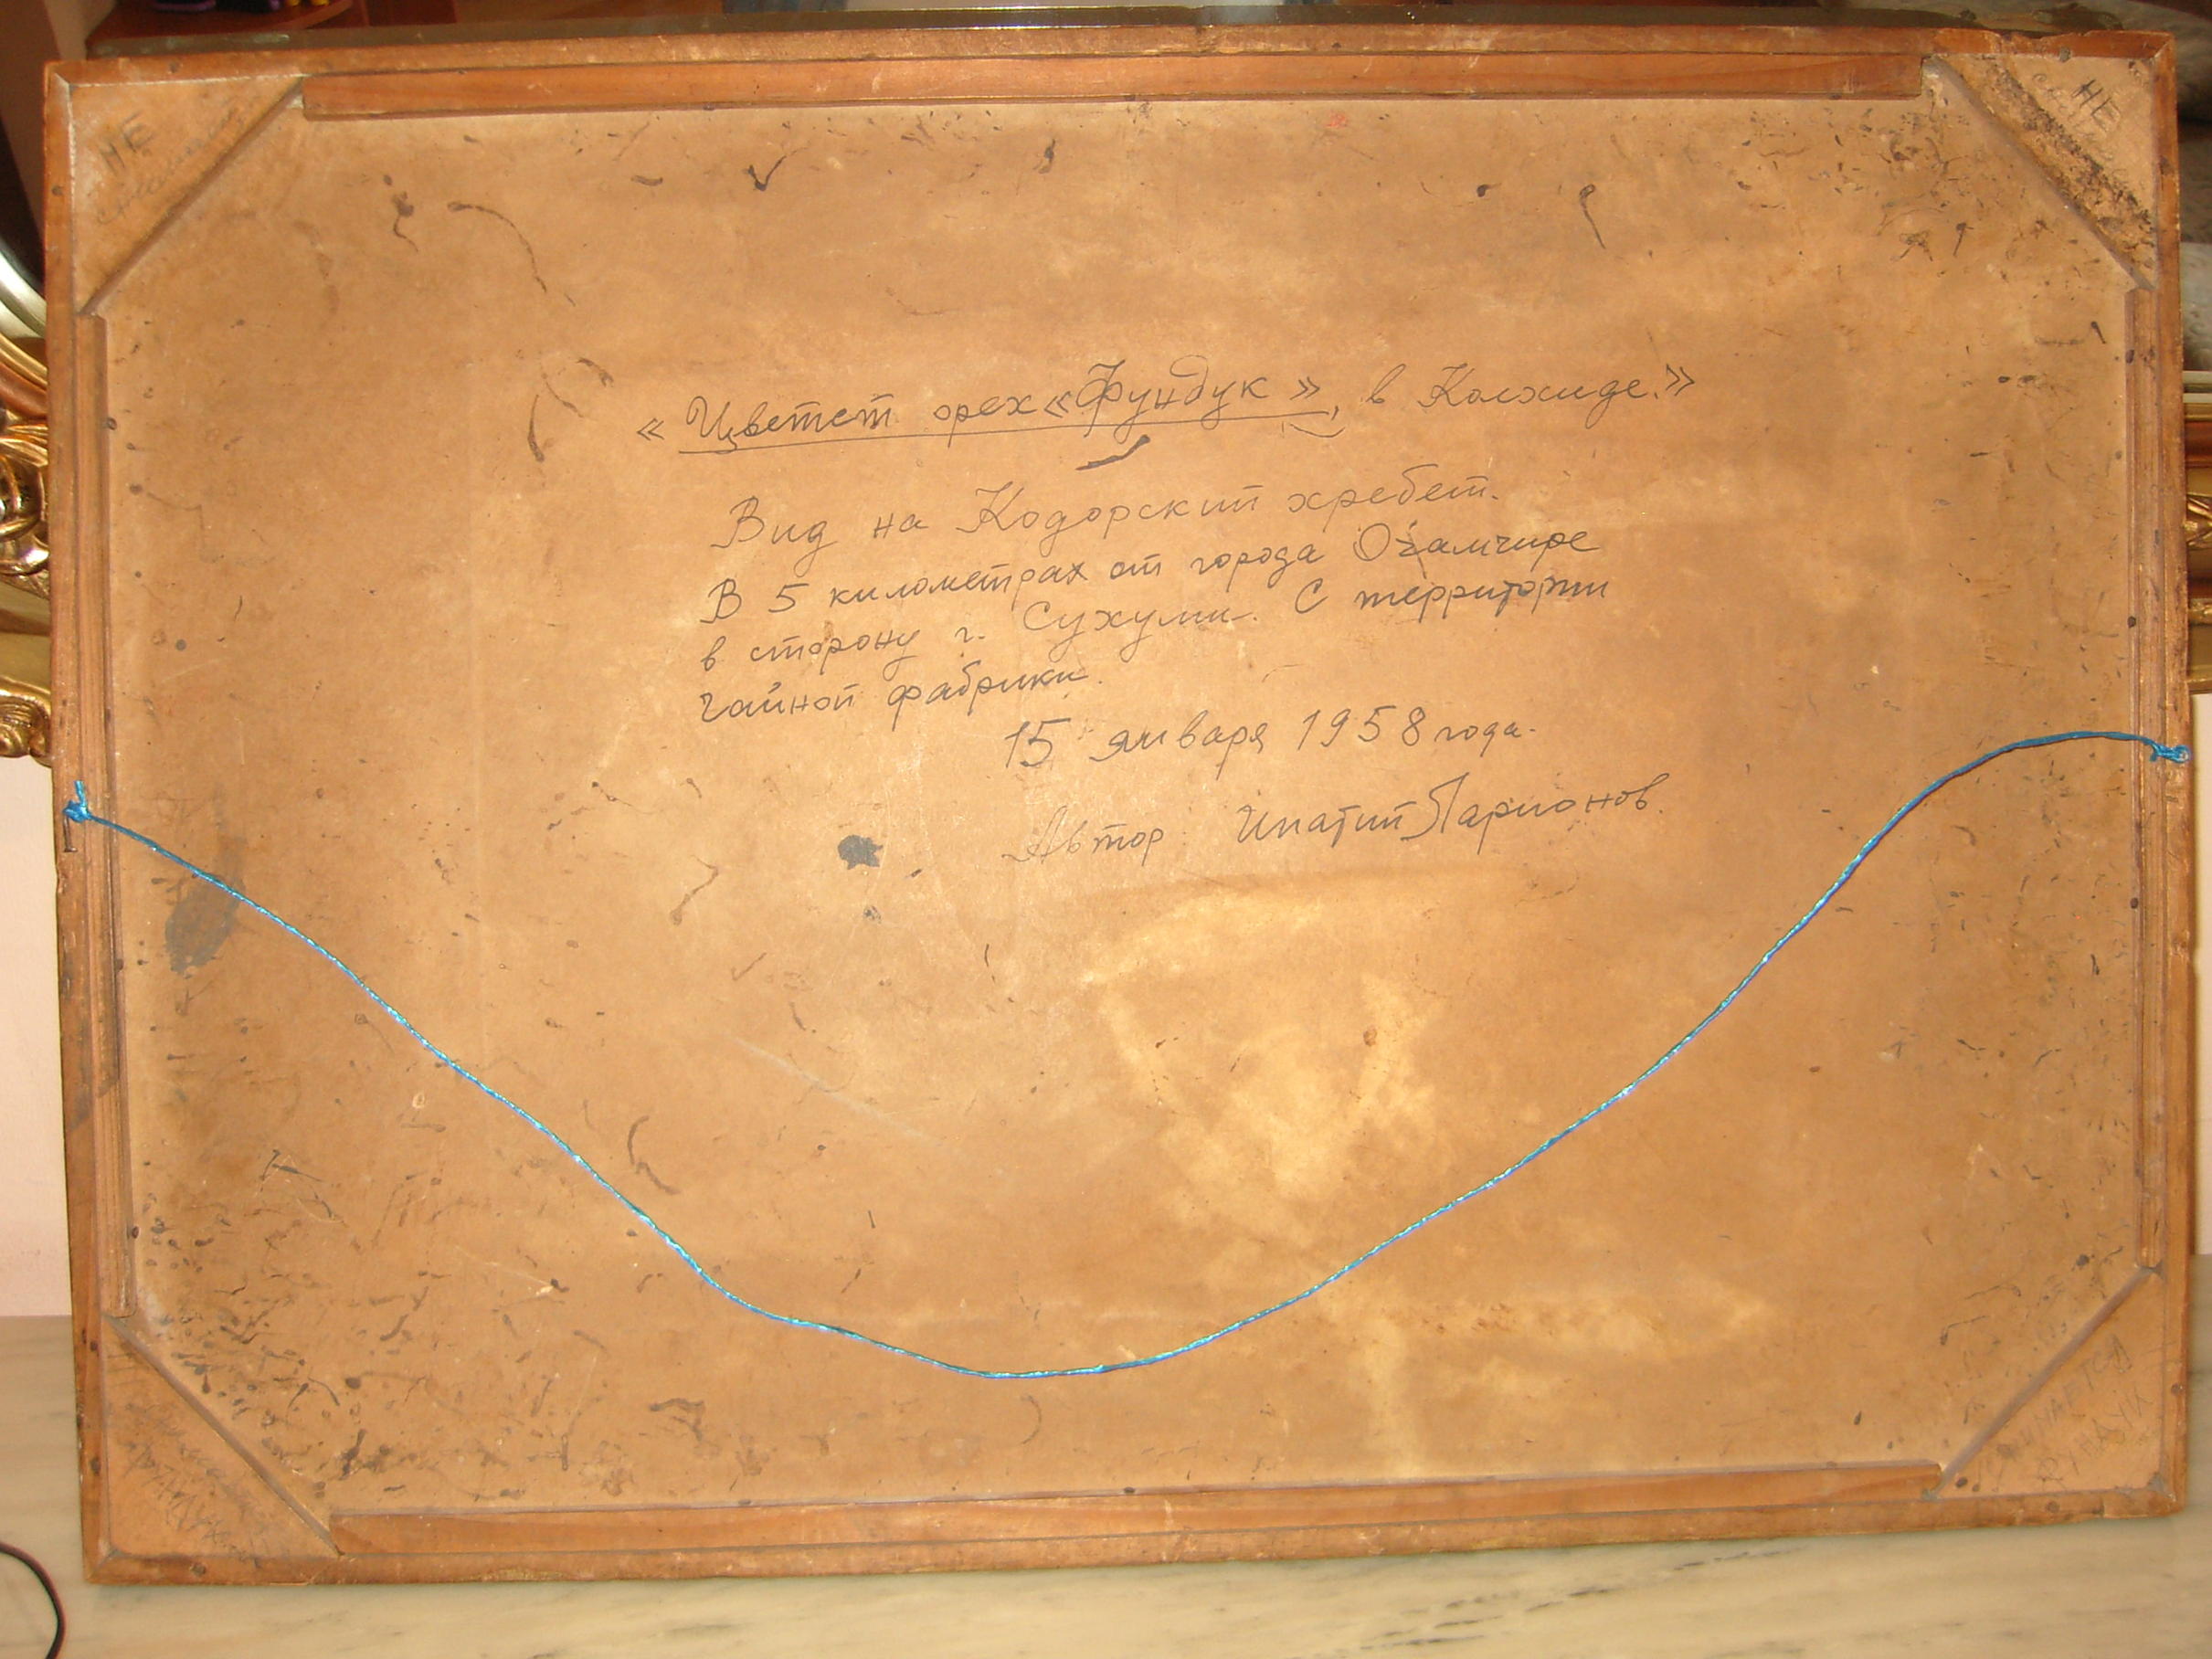 НЕ
НЕ
« Цветет орех «Фундук », в Колхиде.»
Вид на Кодорский хребет.
В 5 километрах от города Очамчире
в сторону г. Сухуми. С территории
чайной фабрики.
15 января 1958 года.
Автор: Ипатий Ларионов.